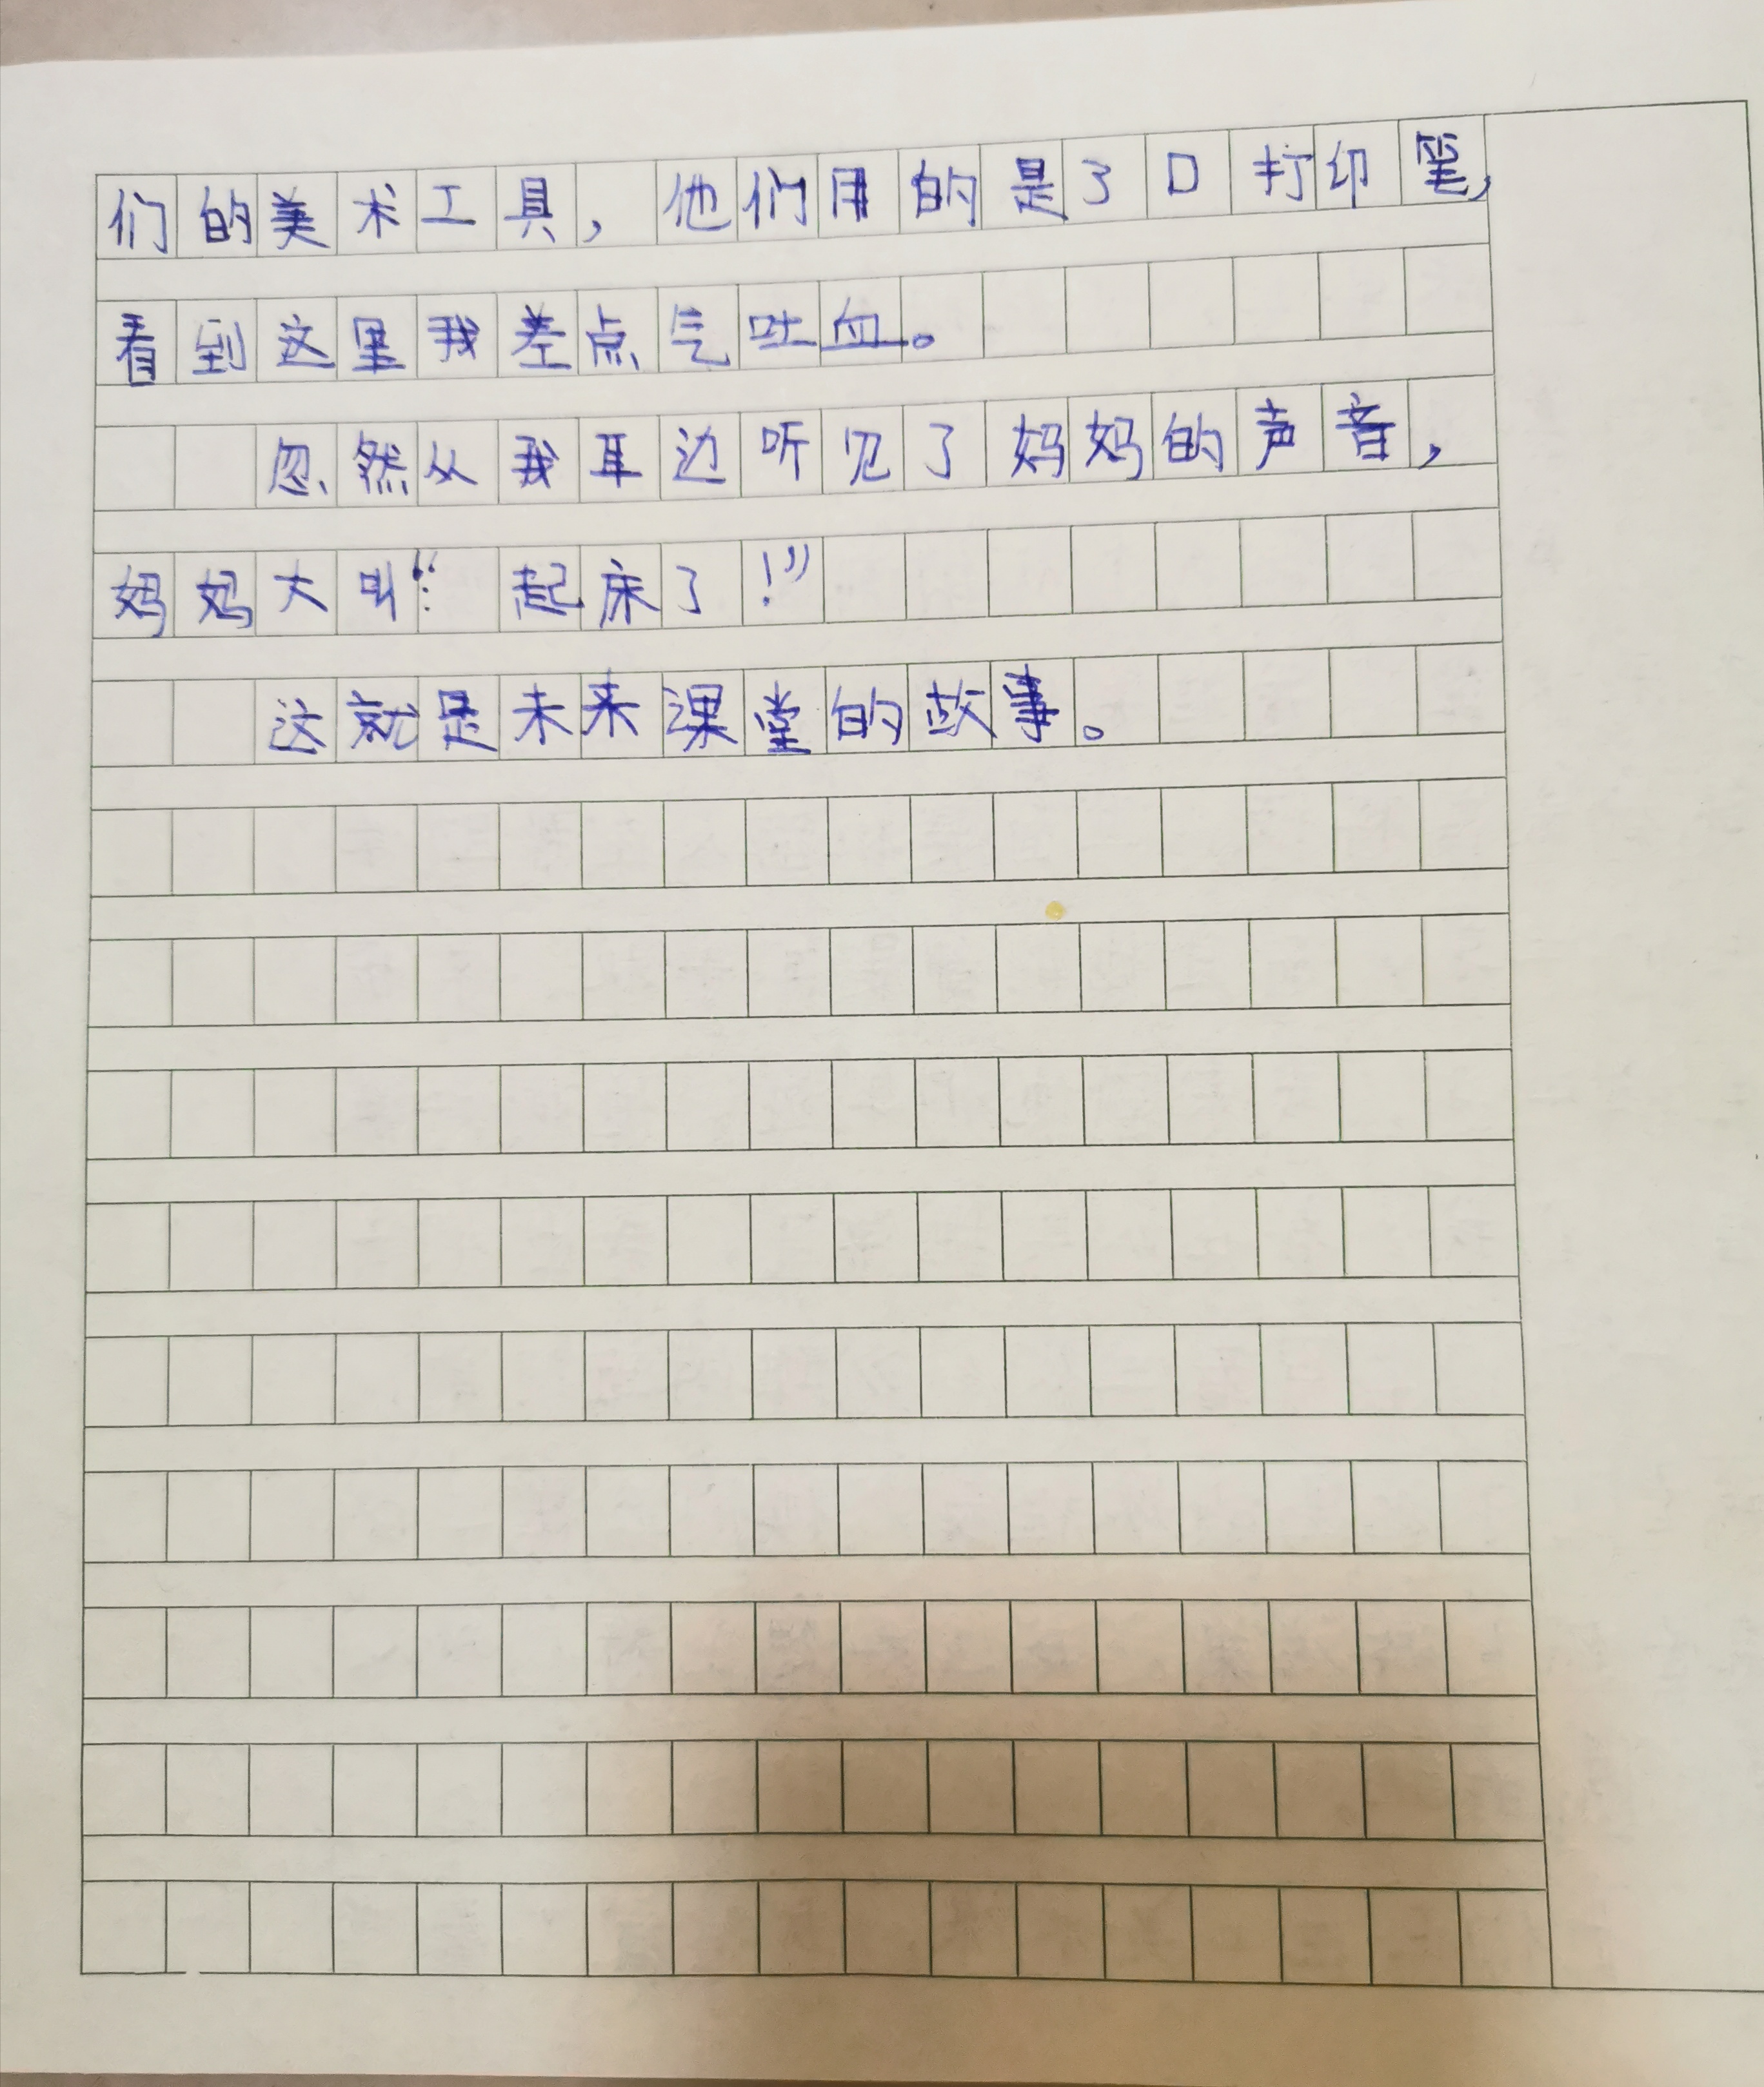 们的美术工具，他们用的是3D打印笔，
看到这里我差点气吐血。
忽然从我耳边听见了妈妈的声音，
妈妈大叫：“起床了！”
这就是未来课堂的故事。